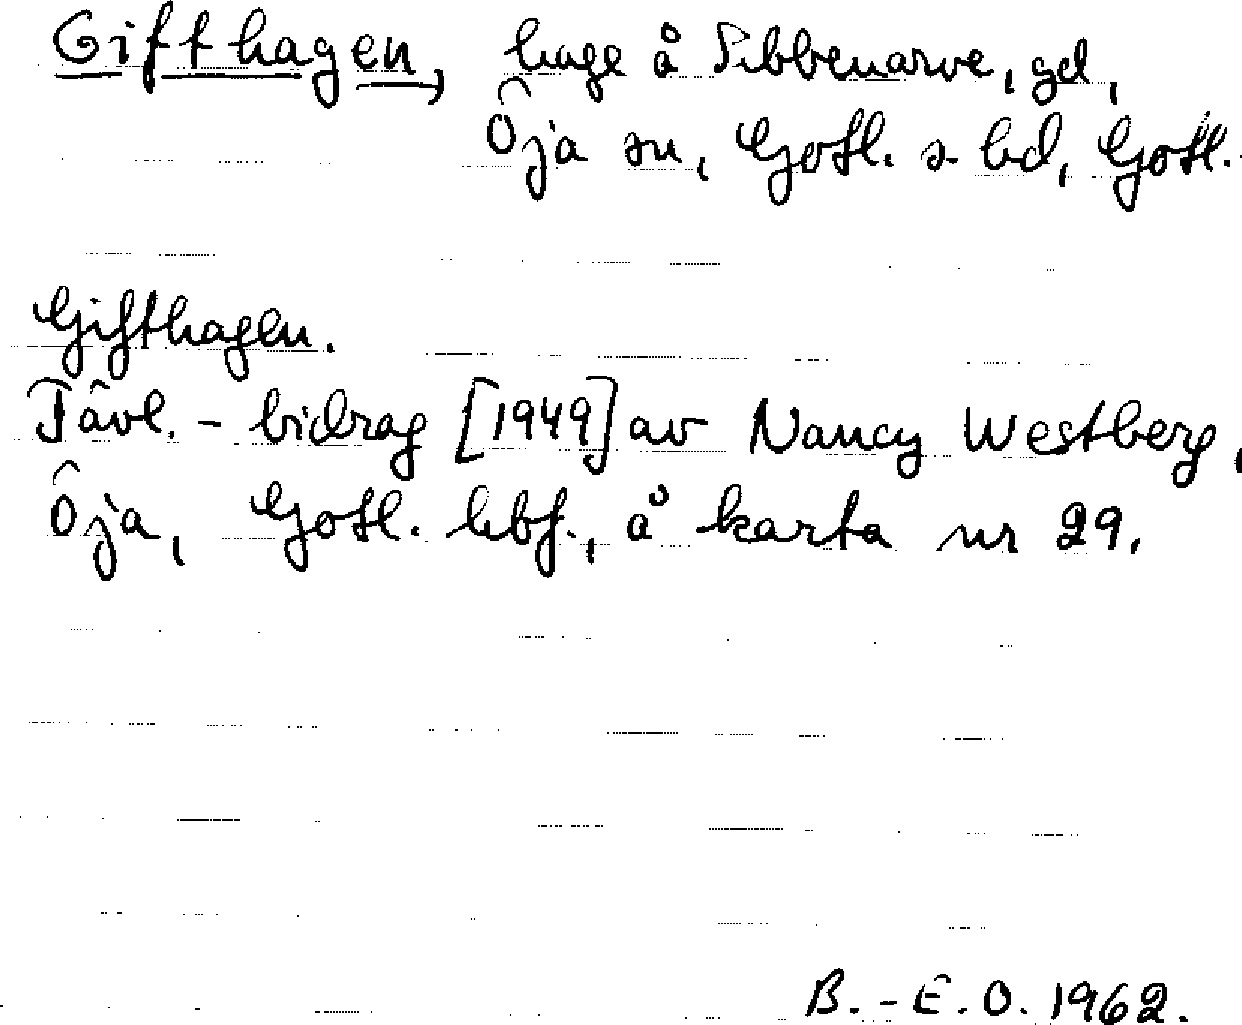 Gifthagen, hage å Sibbenarve, gd,
Öja sn, Gotl. s. hd, Gotl.
Gifthagen.
Tävl.-bidrag [1949] av Nancy Westberg,
Öja, Gotl. hbf., å karta nr 29.
B.-E.O. 1962.